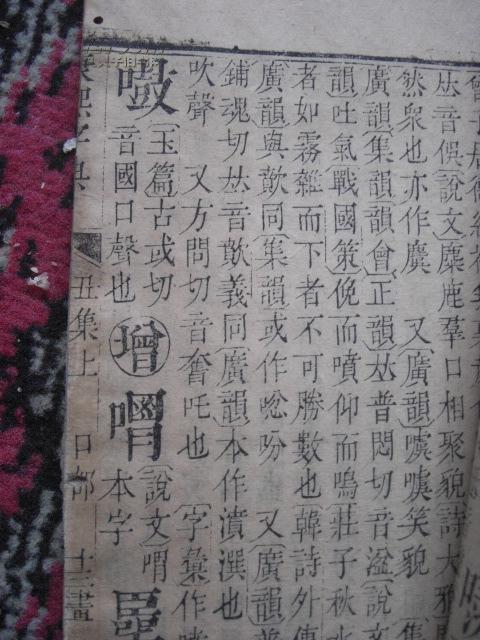 𠀤音俁說文麋鹿羣口相聚貌詩大雅
然衆也亦作麌 又廣韻噳噳笑貌 集
廣韻集韻韻會正韻𠀤普悶切音湓說文
韻吐氣戰國策俛而噴仰而鳴莊子秋
者如霧雜而下者不可勝數也韓詩外傳
廣韻與歕同集韻或作吩 又廣韻普
鋪魂切𠀤音歕義同廣韻本作濆潠也
吹聲 又方問切音奮吒也 字彙作
玉篇古或切
音國口聲也
增
說文喟
本字
康熙字典 丑集上 口部 十二畫